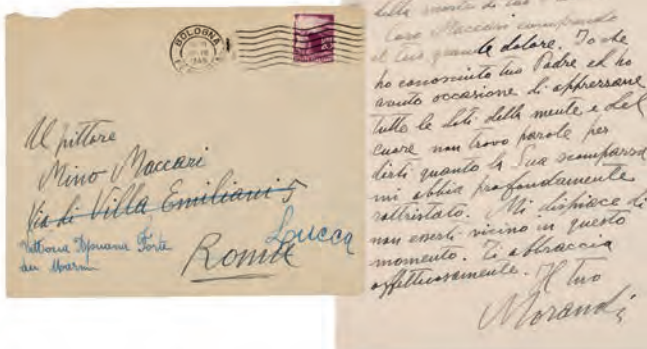 BOLOGNA
Al pittore
Mino Maccari
Via di Villa Emiliani 5
Lucca
Vittoria Apuana Forte
dei Marmi
Roma
della morte di tuo
Caro Maccari comprendo
il tuo grande dolore. Io che
ho conosciuto tuo Padre ed ho
avuto occasione di apprezzare
tutte le doti della mente e del
cuore non trovo parole per
dirti quanto la Sua scomparsa
mi abbia profondamente
rattristato. Mi dispiace di
non esserti vicino in questo
momento. Ti abbraccia
affettuosamente. Il tuo
Morandi